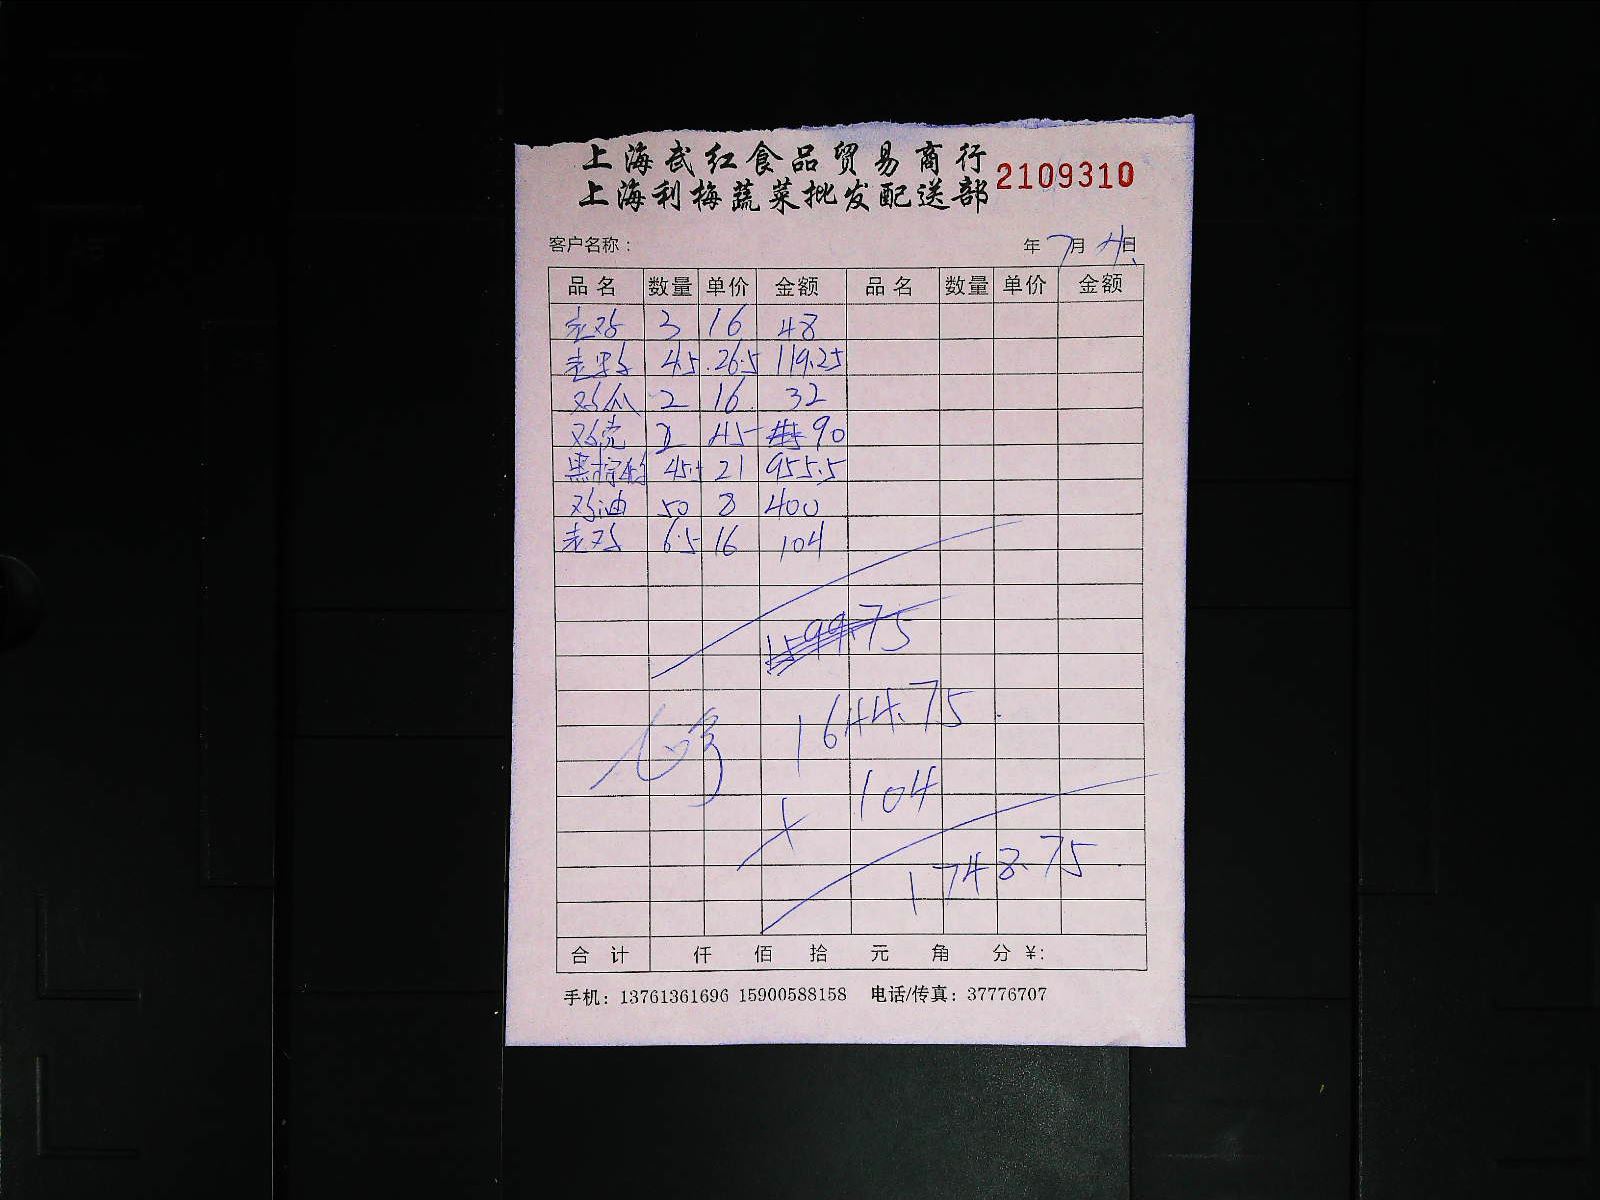 上海武红食品贸易商行
上海利梅蔬菜批发配送部 2109310
客户名称： 年7月4日
品名 数量 单价 金额 品名 数量 单价 金额
老鸡 3 16 48
4.5 26.5 119.25
鸡爪 2 16 32
鸡壳 2 45 90
黑棕鹅 45.5 21 955.5
鸡油 50 8 400
老鸡 6.5 16 104
1599.75
1644.75
+ 104
1748.75
合计 仟 佰 拾 元 角 分 ¥:
手机：13761361696 15900588158 电话/传真：37776707